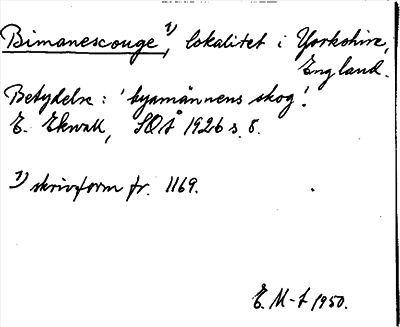 Bimanescouge ¹⁾, lokalitet i Yorkshire,
England.
Betydelse: 'byamännens skog'.
E. Ekwall, SOÅ 1926 s. 8.
¹⁾ skrivform fr. 1169.
E. M-t 1950.